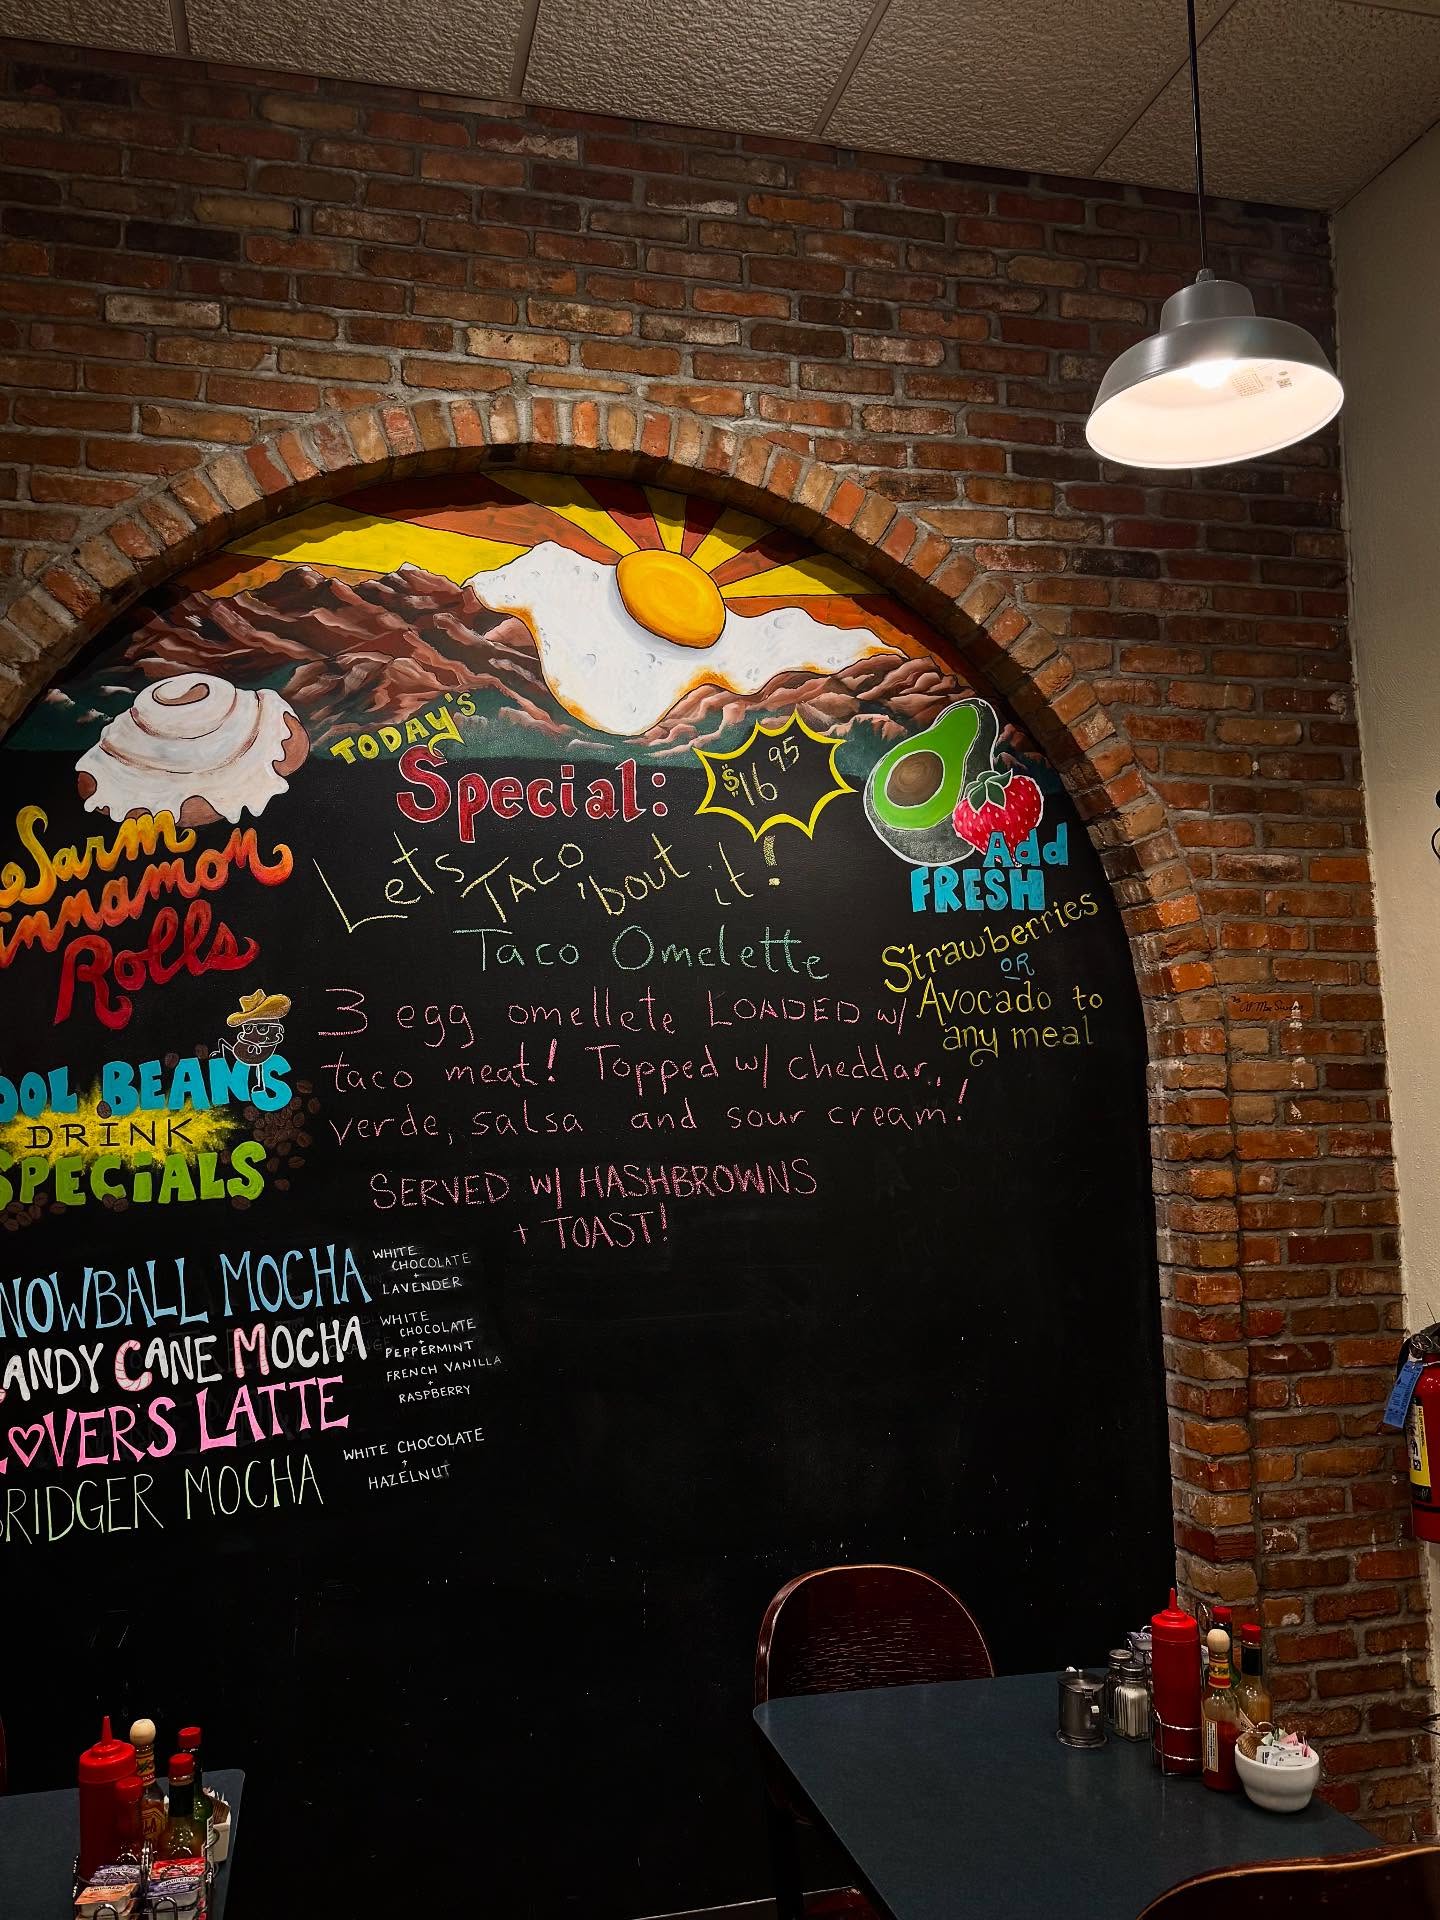 TODAY'S
Special:
$16 95
Lets TACO 'bout it!
Taco Omelette
3 egg omellete LOADED w/
taco meat! Topped w/ cheddar,
verde, salsa and sour cream!
SERVED W/ HASHBROWNS
+ TOAST!
Add
FRESH
Strawberries
OR
Avocado to
any meal
innamon
Rolls
OOL BEANS
DRINK
SPECiALS
NOWBALL MOCHA
WHITE
CHOCOLATE
+
LAVENDER
ANDY CANE MOCHA
WHITE
CHOCOLATE
+
PEPPERMINT
LOVER'S LATTE
FRENCH VANILLA
+
RASPBERRY
BRIDGER MOCHA
WHITE CHOCOLATE
+
HAZELNUT